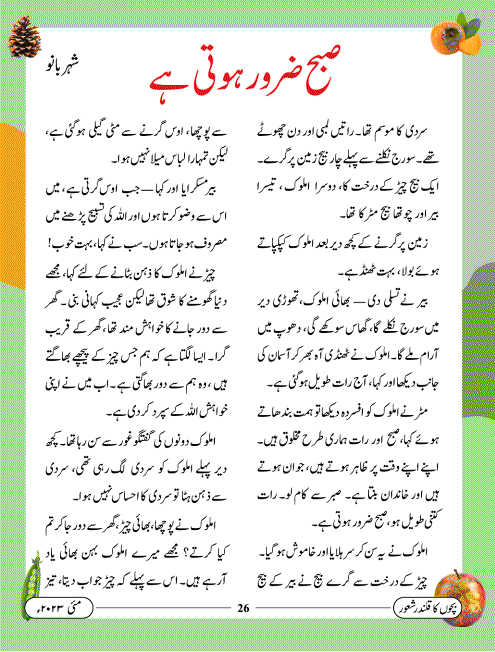 صبح ضرور ہوتی ہے
شہر بانو
سردی کا موسم تھا۔ راتیں لمبی اور دن چھوٹے
تھے۔ سورج نکلنے سے پہلے چار بیج زمین پر گرے۔
ایک بیج چیڑ کے درخت کا، دوسرا املوک ، تیسرا
بیر اور چوتھا بیج مٹر کا تھا۔
زمین پر گرنے کے کچھ دیر بعد املوک کپکپاتے
ہوئے بولا، بہت ٹھنڈ ہے۔
بیر نے تسلی دی — بھائی املوک ،تھوڑی دیر
میں سورج نکلے گا، گھاس سوکھے گی، دھوپ میں
آرام ملے گا۔ املوک نے ٹھنڈی آہ بھر کر آسمان کی
جانب دیکھا اور کہا، آج رات طویل ہو گئی ہے۔
مٹر نے املوک کو افسردہ دیکھا تو ہمت بندھاتے
ہوئے کہا، صبح اور رات ہماری طرح مخلوق ہیں۔
اپنے اپنے وقت پر ظاہر ہوتے ہیں، جوان ہوتے
ہیں اور خاندان بنتا ہے۔ صبر سے کام لو۔ رات
کتنی طویل ہو، صبح ضرور ہوتی ہے۔
املوک نے یہ سن کر سر ہلایا اور خاموش ہو گیا۔
چیڑ کے درخت سے گرے بیج نے بیر کے بیج
سے پوچھا، اوس گرنے سے مٹی گیلی ہو گئی ہے،
لیکن تمہارا لباس میلا نہیں ہوا۔
بیر مسکرایا اور کہا — جب اوس گرتی ہے، میں
اس سے وضو کرتا ہوں اور اللہ کی تسبیح پڑھنے میں
مصروف ہو جاتا ہوں۔ سب نے کہا، بہت خوب!
چیڑ نے املوک کا ذہن بٹانے کے لئے کہا، مجھے
دنیا گھومنے کا شوق تھا لیکن عجیب کہانی بنی ۔ گھر
سے دور جانے کا خواہش مند تھا، گھر کے قریب
گرا۔ ایسا لگتا ہے کہ ہم جس چیز کے پیچھے بھاگتے
ہیں ، وہ ہم سے دور بھاگتی ہے۔ اب میں نے اپنی
خواہش اللہ کے سپرد کر دی ہے۔
املوک دونوں کی گفتگو غور سے سن رہا تھا۔ کچھ
دیر پہلے املوک کو سردی لگ رہی تھی، سردی
سے ذہن ہٹا تو سردی کا احساس نہیں ہوا۔
املوک نے پوچھا، بھائی چیڑ، گھر سے دور جا کر تم
کیا کرتے؟ مجھے میرے املوک بہن بھائی یاد
آرہے ہیں۔ اس سے پہلے کہ چیڑ جواب دیتا، تیز
بچوں کا قلندر شعور
26
مئی ۲۰۲۳ء